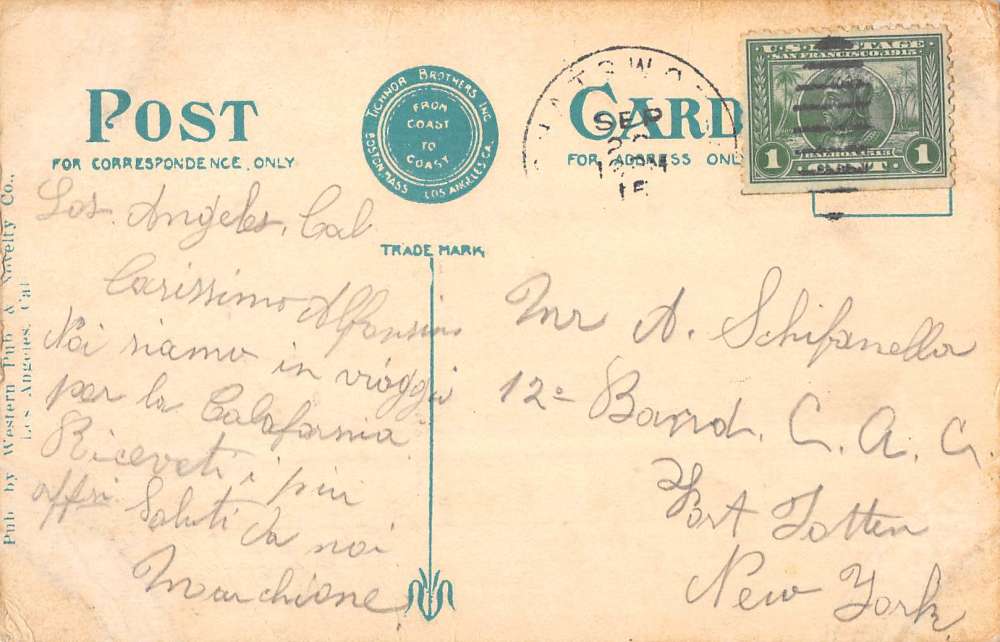 POST CARD
FOR CORRESPONDENCE ONLY
FOR ADDRESS ONL
TICHNOR BROTHERS INC.
BOSTON, MASS. LOS ANGELES, CA.
FROM
COAST
TO
COAST
TRADE MARK
SEP
15
U.S. POSTAGE
SAN FRANCISCO, 1915
1 CENT 1
Los Angeles, Cal
Carissimo Alfonsino
Noi siamo in viaggio
per la Calafornia
Riceveti i piu
affri Saluti da noi
Marchione
Mr A. Schifanella
12º Band. C. A. C.
Fort Totten
New York
Pub by Western Pub & Novelty Co.,
Los Angeles, Cal